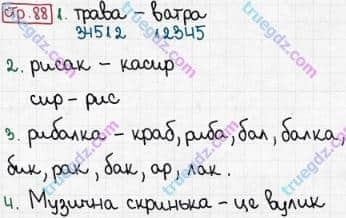 стр. 88 1. трава - ватра
34512 12345
2. рисак - касир
сир - рис
3. рибалка - краб, риба, бал, балка,
бик, рак, бак, ар, лак.
4. Музична скринька - це вулик
truegdz.com